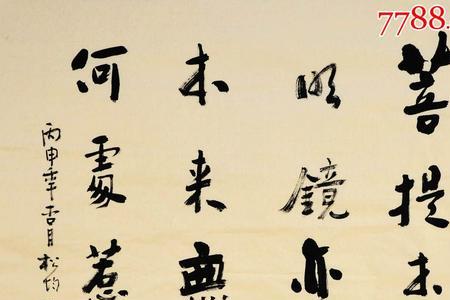 7788.
菩提本
明鏡亦
本来無
何處惹
丙申年杏月松